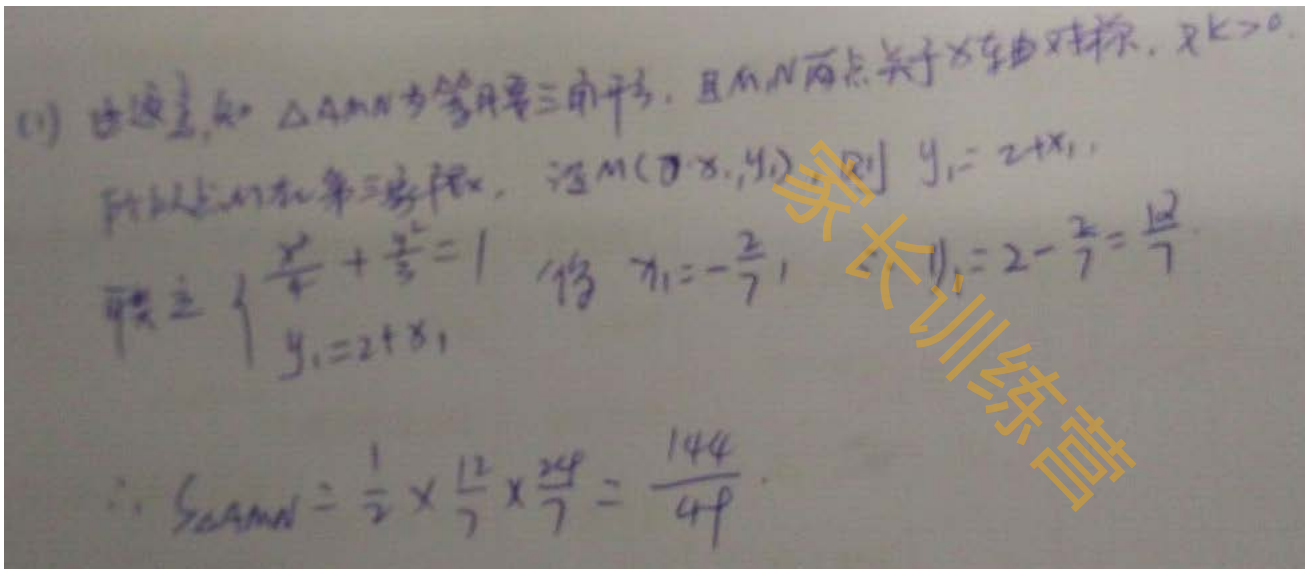 (1) 由题意,知 △AMN为等腰三角形,且M,N两点关于x轴对称,又k>0.
所以点M在第二象限,设M(x₁,y₁),则 y₁=2+x₁,
联立 { x²/4 + y²/3 = 1 得 x₁=-2/7, ∴ y₁=2-2/7=12/7.
y₁=2+x₁
∴ S△AMN = 1/2 × 12/7 × 24/7 = 144/49.
家长训练营